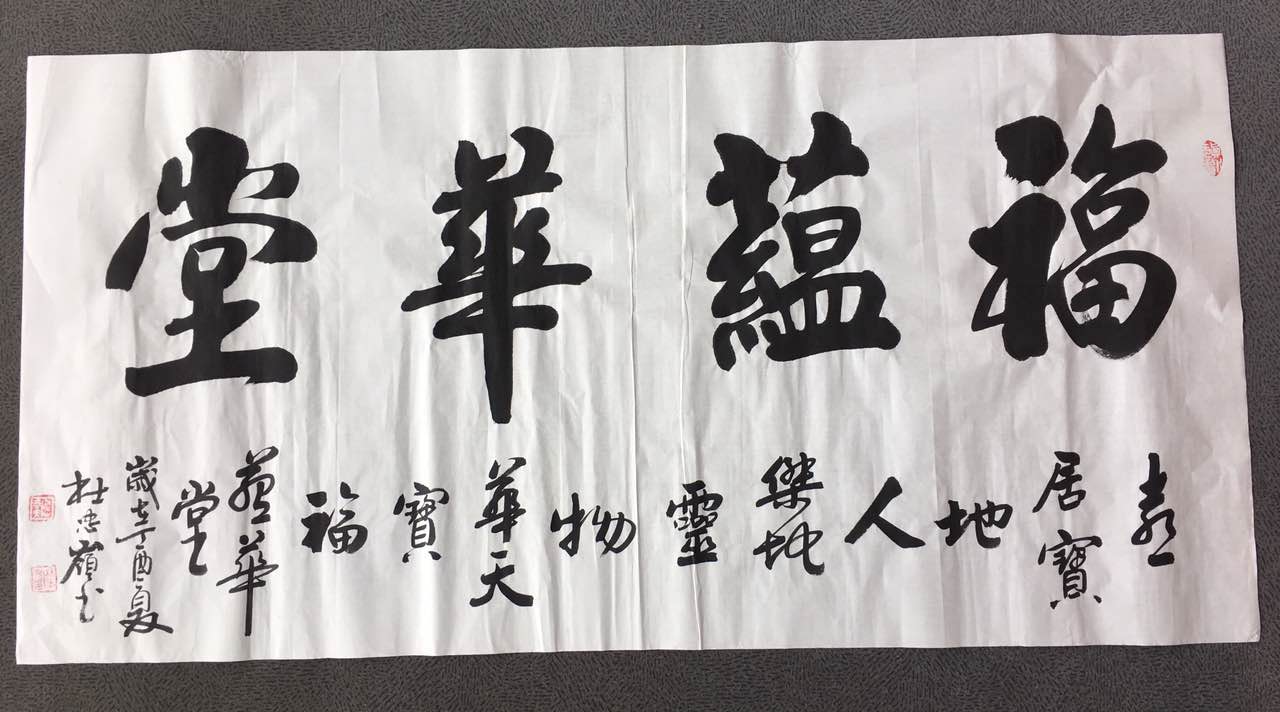 福蘊華堂
喜
居寶
地
人
傑地
靈
物
華天
寶
福
蘊華
堂
歲在丁酉夏
杜忠嶺書